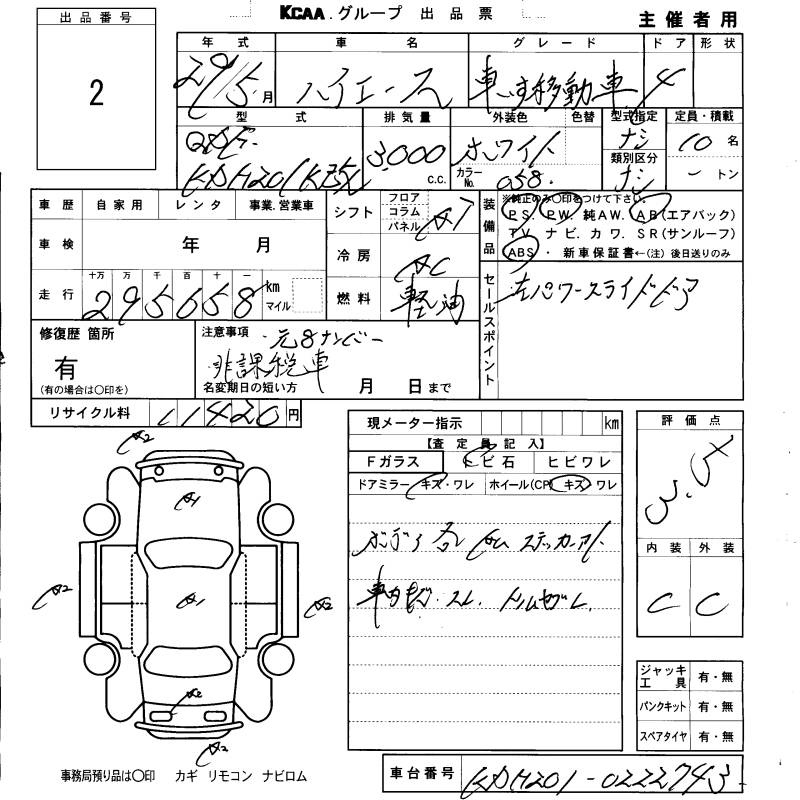 KCAA.グループ 出品票
主催者用
出品番号
2
年式 車名 グレード ドア 形状
29/5月 ハイエース 車いす移動車 4
型式 排気量 外装色 色替 型式指定 定員・積載
QDF-
KDH201K改 3,000 c.c. ホワイト ナシ 10名
カラーNo. 058 類別区分 ナシ ートン
車歴 自家用 レンタ 事業.営業車
車検 年 月
走行 十万 万 千 百 十 一
295658 km マイル
シフト フロア コラム パネル AT
冷房 AC
燃料 軽油
装備品 ※純正のみ○印をつけて下さい。
PS. PW. 純AW. AB(エアバック)
TV. ナビ. カワ. SR(サンルーフ)
ABS ・ 新車保証書←(注)後日送りのみ
セールスポイント
左パワースライドドア
修復歴 箇所
有
(有の場合は○印を)
注意事項 元8ナンバー
非課税車
名変期日の短い方 月 日まで
リサイクル料 11420円
現メーター指示 km
【査定員記入】
Fガラス トビ石 ヒビワレ
ドアミラー キズ・ワレ ホイール(CP) キズ・ワレ
ボディ各
車内 スレ.
評価点
3.5
内装 外装
C C
A2
A1
A2 A1 A2
A2
A2
ジャッキ工具 有・無
パンクキット 有・無
スペアタイヤ 有・無
事務局預り品は○印 カギ リモコン ナビロム
車台番号 KDH201-0222743